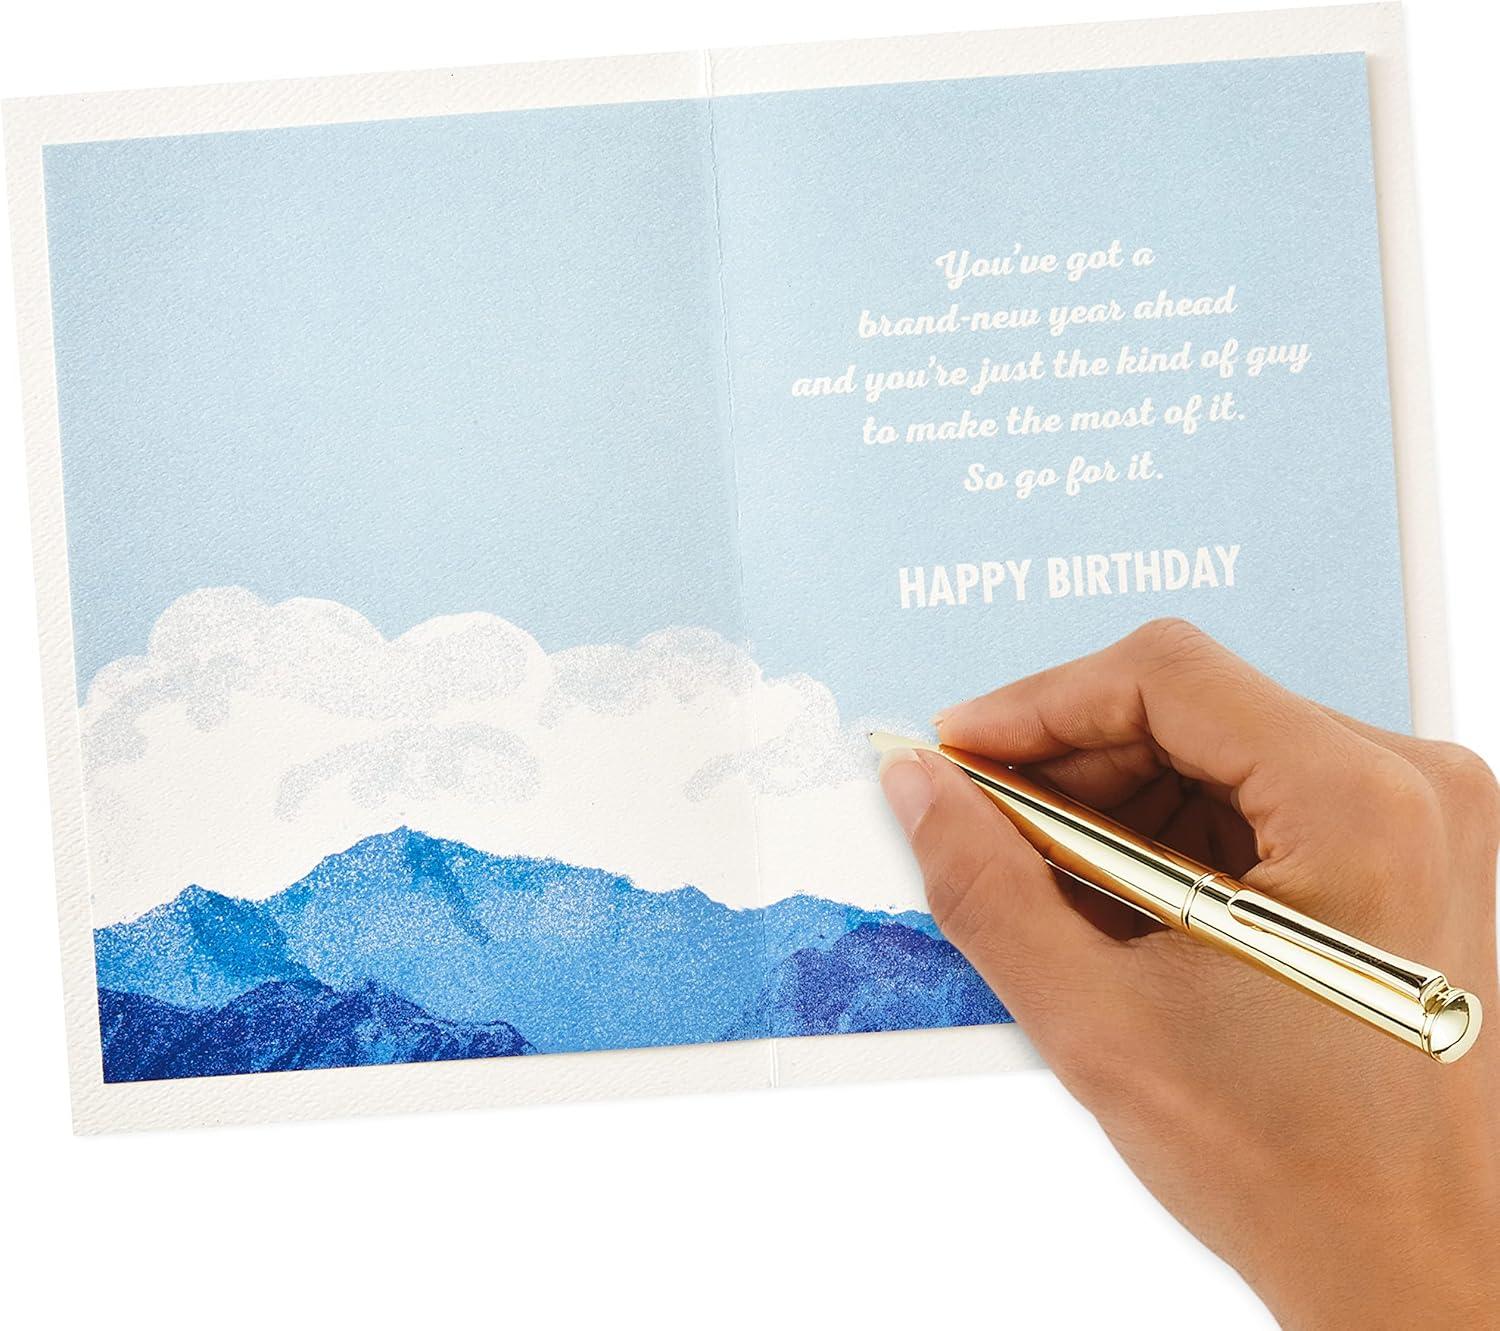 You've got a
brand-new year ahead
and you're just the kind of guy
to make the most of it.
So go for it.
HAPPY BIRTHDAY